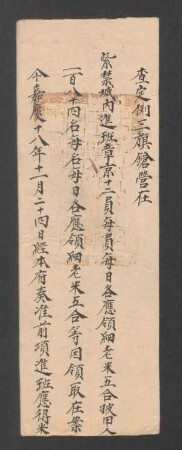 查定例三旗鎗營在
紫禁城內進班章京十二員每員每日各應領細老米五合披甲人
一百八十四名每名每日各應領細老米五合等因領取在案
今嘉慶十八年十二月二十四日經本府奏准前項進班應得米